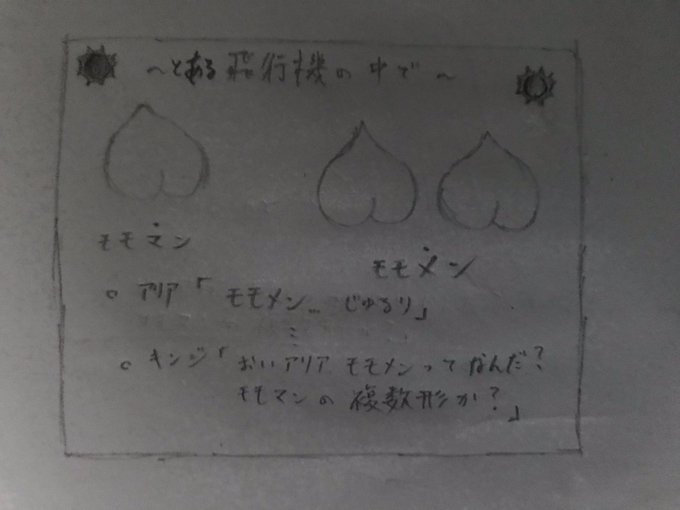 ～とある飛行機の中で～
モモマン
モモメン
。アリア「モモメン… じゅるり」
⋮
。キンジ「おいアリア モモメンってなんだ?
モモマンの複数形か?」